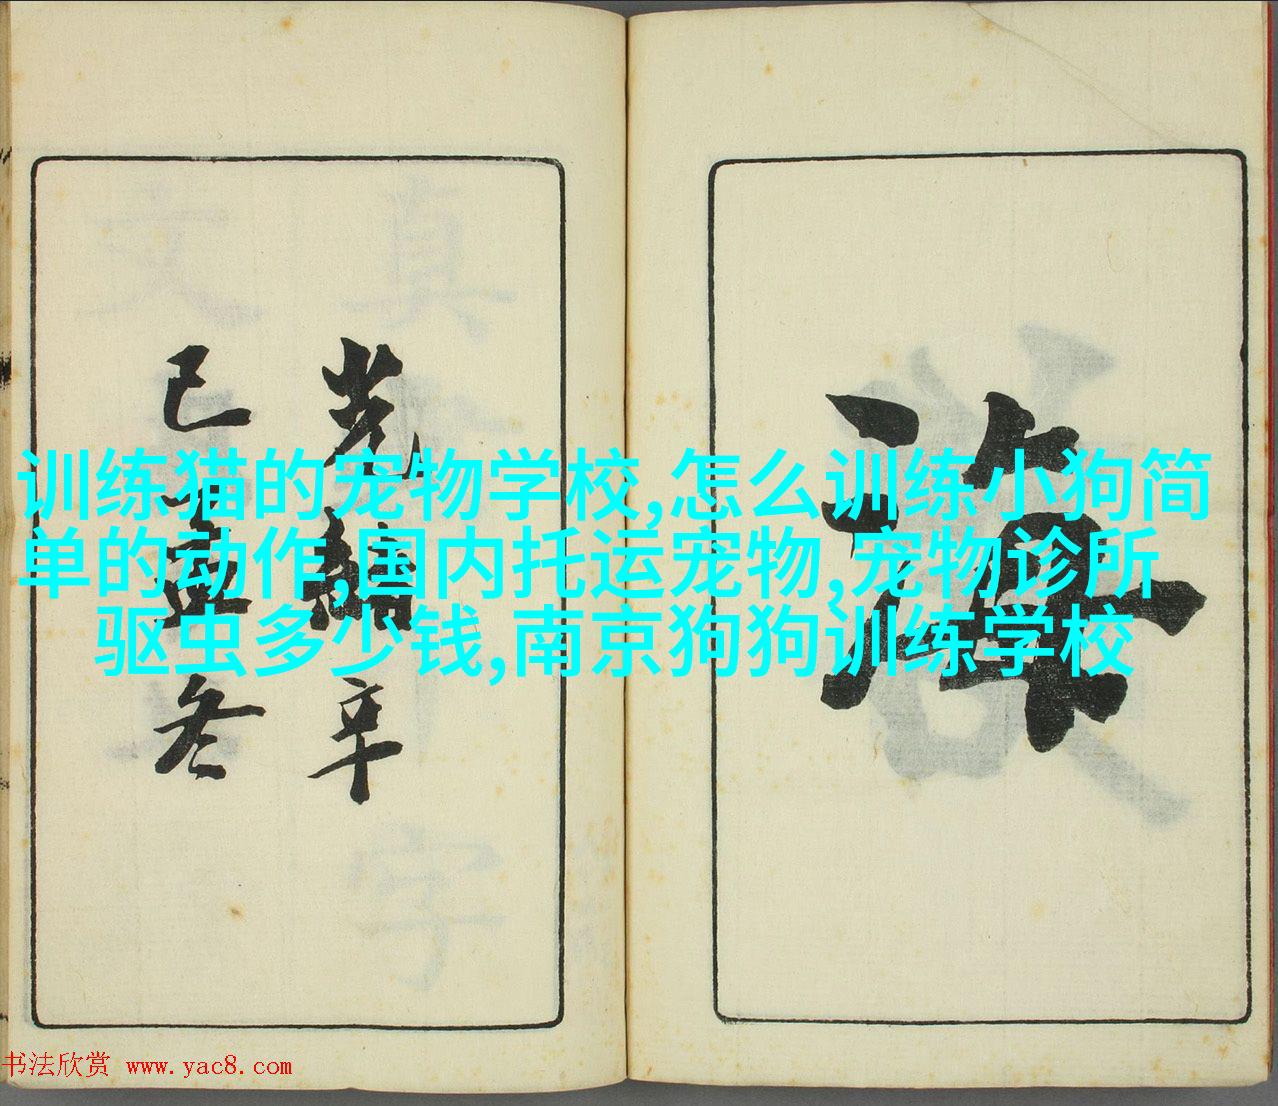 訓练猫的宠物学校,怎么训练小狗简
单的动作,国内托运宠物,宠物诊所
驱虫多少钱,南京狗狗训练学校
海
光緒辛
已孟冬
书法欣赏 www.yac8.com